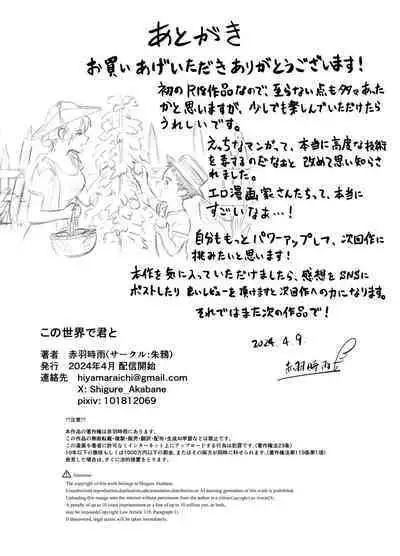 あとがき
お買いあげいただきありがとうございます!
初のR18作品なので、至らない点も多々あった
かと思いますが、少しでも楽しんでいただけたら
うれしいです。
えっちなマンガって、本当に高度な技術
を要するのだなぁと改めて思い知ら
されました。
エロ漫画家さんたちって、本当に
すごいなぁ…!
自分ももっとパワーアップして、次回作に
挑みたいと思います!
本作を気に入っていただけましたら、感想をSNSに
ポストしたり良いレビューを頂けますと次回作への力になります。
それではまた次の作品で!
2024.4.9.
赤羽時雨
この世界で君と
著者 赤羽時雨(サークル:朱鷺)
発行 2024年4月 配信開始
連絡先 hiyamaraichi@gmail.com
X: Shigure_Akabane
pixiv: 101812069
!?注意!?
本作品の著作権は赤羽時雨にあります。
この作品の無断転載・複製・販売・翻訳・配布・生成AI学習などは禁止です。
この漫画を著者に許可なくインターネット上にアップロードする行為は犯罪です。(著作権法23条)
10年以下の懲役もしくは1000万円以下の罰金、またはその両方が同時に科せられます。(著作権法第119条第1項)
発見した場合は、すぐに法的措置をとります。
Attention
The copyright of this work belongs to Shigure Akabane.
Unauthorized reproduction,duplication,sale,translation,distribution or AI learning generation of this work is prohibited.
Uploading this manga onto the internet without permission from the author is a crime(Copyright Law Article23).
A penalty of up to 10 years imprisonment or a fine of up to 10 million yen, or both,
may be imposed(Copyright Law Article 119, Paragraph 1).
If discovered, legal action will be taken immediately.